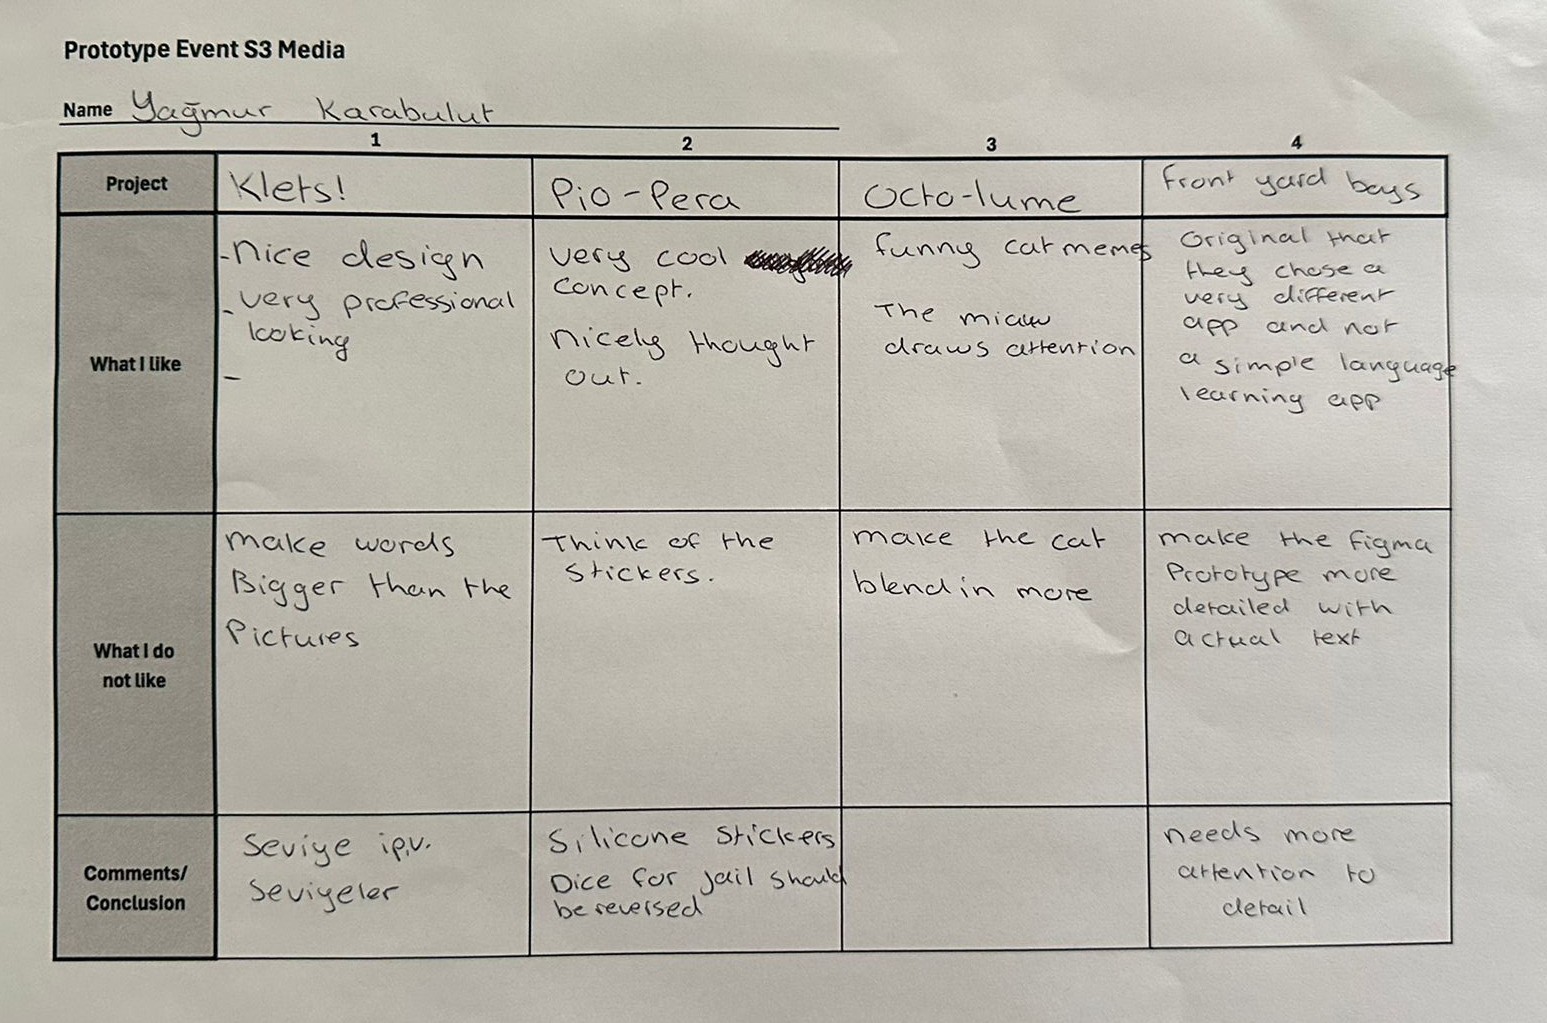 Prototype Event S3 Media
Name Yağmur Karabulut
1 2 3 4
Project
Klets!
Pio-Pera
Octo-lume
front yard boys
What I like
-Nice design
- very professional
looking
-
very cool
concept.
nicely thought
out.
funny cat memes
The miauw
draws attention
Original that
they chose a
very different
app and not
a simple language
learning app
What I do
not like
make words
Bigger than the
Pictures
Think of the
stickers.
make the cat
blend in more
make the figma
Prototype more
detailed with
actual text
Comments/
Conclusion
Seviye i.p.v.
Seviyeler
Silicone Stickers
Dice for jail should
be reversed
needs more
attention to
detail